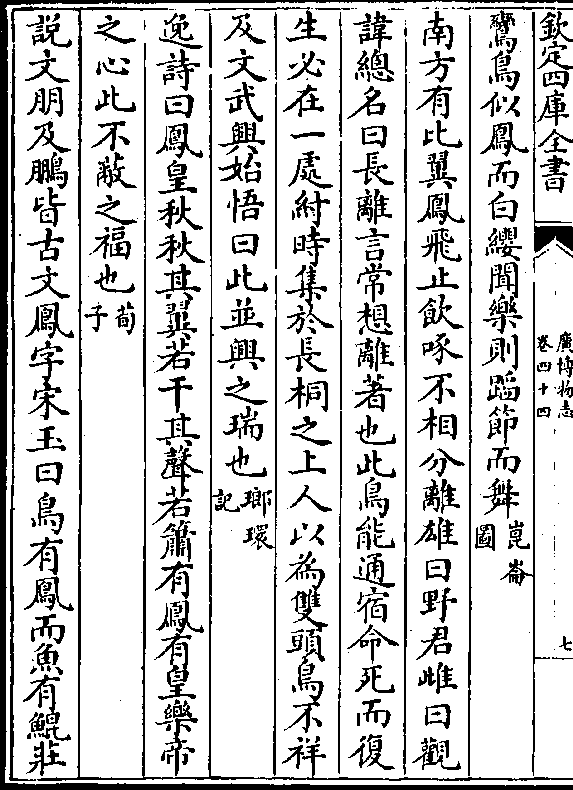 欽定四庫全書
廣博物志
卷四十四
七
鸞鳥似鳳而白纓聞樂則蹈節而舞崑崙圖
南方有比翼鳳飛止飲啄不相分離雄曰野君雌曰觀
諱總名曰長離言常想離著也此鳥能通宿命死而復
生必在一處紂時集於長桐之上人以為雙頭鳥不祥
及文武興始悟曰此並興之瑞也瑯環記
逸詩曰鳳皇秋秋其翼若干其聲若簫有鳳有皇樂帝
之心此不蔽之福也荀子
説文朋及鵬皆古文鳳字宋玉曰鳥有鳳而魚有鯤莊